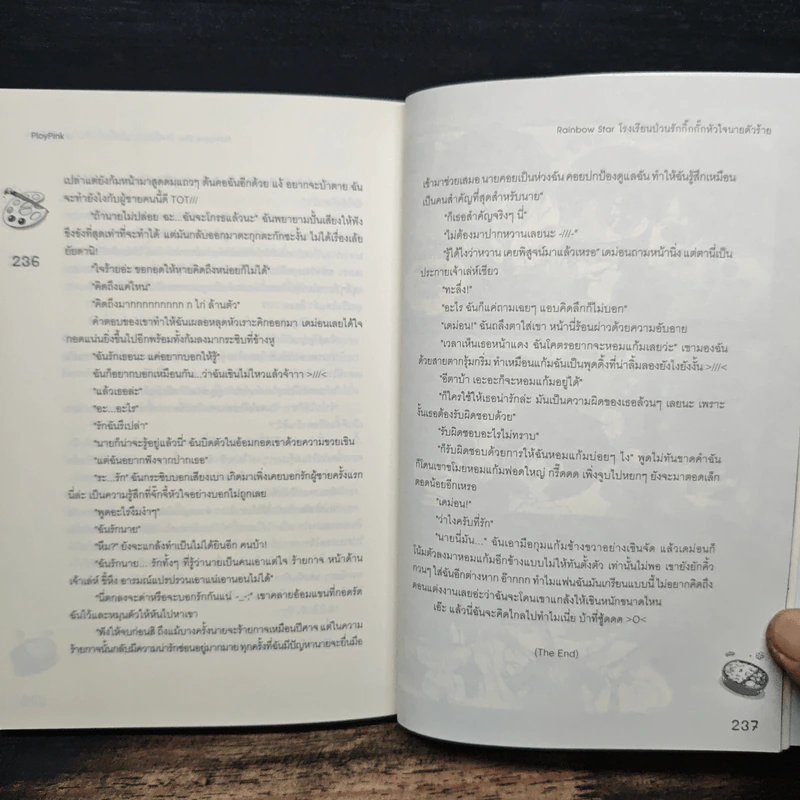 PloyPink
เปล่าแต่ยังก้มหน้ามาสูดดมแถวๆ ต้นคอฉันอีกด้วย แง้ อยากจะบ้าตาย ฉัน
จะทำยังไงกับผู้ชายคนนี้ดี TOT///
"ถ้านายไม่ปล่อย ฉะ...ฉันจะโกรธแล้วนะ" ฉันพยายามปั้นเสียงให้ฟัง
ขึงขังที่สุดเท่าที่จะทำได้ แต่มันกลับออกมาตะกุกตะกักซะงั้น ไม่ได้เรื่องเล้ย
ยัยดานิ!
236
"ใจร้ายอ่ะ ขอกอดให้หายคิดถึงหน่อยก็ไม่ได้"
"คิดถึงแค่ไหน"
"คิดถึงมากกกกกกกกกก ก ไก่ ล้านตัว"
คำตอบของเขาทำให้ฉันเผลอหลุดหัวเราะคิกออกมา เดม่อนเลยได้ใจ
กอดแน่นยิ่งขึ้นไปอีกพร้อมทั้งก้มลงมากระซิบที่ข้างหู
"ฉันรักเธอนะ แค่อยากบอกให้รู้"
ฉันก็อยากบอกเหมือนกัน...ว่าฉันเขินไม่ไหวแล้วจ้าาา >///<
"แล้วเธอล่ะ"
"อะ...อะไร"
"รักฉันรึเปล่า"
"นายก็น่าจะรู้อยู่แล้วนี่" ฉันบิดตัวในอ้อมกอดเขาด้วยความขวยเขิน
"แต่ฉันอยากฟังจากปากเธอ"
"ระ...รัก" ฉันกระซิบบอกเสียงเบา เกิดมาเพิ่งเคยบอกรักผู้ชายครั้งแรก
นี่ล่ะ เป็นความรู้สึกที่จั๊กจี้หัวใจอย่างบอกไม่ถูกเลย
"พูดอะไรงึมงำๆ"
"ฉันรักนาย"
"หืม?" ยังจะแกล้งทำเป็นไม่ได้ยินอีก คนบ้า!
"ฉันรักนาย... รักทั้งๆ ที่รู้ว่านายเป็นคนเอาแต่ใจ ร้ายกาจ หน้าด้าน
เจ้าเล่ห์ ขี้หึง อารมณ์แปรปรวนเอาแน่เอานอนไม่ได้"
"นี่ตกลงจะด่าหรือจะบอกรักกันแน่ -_-;" เขาคลายอ้อมแขนที่กอดรัด
ฉันไว้และหมุนตัวให้หันไปหาเขา
"ฟังให้จบก่อนสิ ถึงแม้บางครั้งนายจะร้ายกาจเหมือนปีศาจ แต่ในความ
ร้ายกาจนั้นกลับมีความน่ารักซ่อนอยู่มากมาย ทุกครั้งที่ฉันมีปัญหานายจะยื่นมือ
Rainbow Star โรงเรียนป่วนรักกิ๊กกั๊กหัวใจนายตัวร้าย
เข้ามาช่วยเสมอ นายคอยเป็นห่วงฉัน คอยปกป้องดูแลฉัน ทำให้ฉันรู้สึกเหมือน
เป็นคนสำคัญที่สุดสำหรับนาย"
"ก็เธอสำคัญจริงๆ นี่"
"ไม่ต้องมาปากหวานเลยนะ -///-"
"รู้ได้ไงว่าหวาน เคยพิสูจน์มาแล้วเหรอ" เดม่อนถามหน้านิ่ง แต่ตานี่เป็น
ประกายเจ้าเล่ห์เชียว
"ทะลึ่ง!"
"อะไร ฉันก็แค่ถามเฉยๆ แอบคิดลึกก็ไม่บอก"
"เดม่อน!" ฉันถลึงตาใส่เขา หน้านี่ร้อนผ่าวด้วยความอับอาย
"เวลาเห็นเธอหน้าแดง ฉันโคตรอยากจะหอมแก้มเลยว่ะ" เขามองฉัน
ด้วยสายตากรุ้มกริ่ม ทำเหมือนแก้มฉันเป็นพุดดิ้งที่น่าลิ้มลองยังไงยังงั้น >///<
"อีตาบ้า เอะอะก็จะหอมแก้มอยู่ได้"
"ก็ใครใช้ให้เธอน่ารักล่ะ มันเป็นความผิดของเธอล้วนๆ เลยนะ เพราะ
งั้นเธอต้องรับผิดชอบด้วย"
"รับผิดชอบอะไรไม่ทราบ"
"ก็รับผิดชอบด้วยการให้ฉันหอมแก้มบ่อยๆ ไง" พูดไม่ทันขาดคำฉัน
ก็โดนเขาขโมยหอมแก้มฟอดใหญ่ กรี๊ดดด เพิ่งจูบไปหยกๆ ยังจะมาตอดเล็ก
ตอดน้อยอีกเหรอ
"เดม่อน!"
"ว่าไงครับที่รัก"
"นายนี่มัน..." ฉันเอามือกุมแก้มข้างขวาอย่างเขินจัด แล้วเดม่อนก็
โน้มตัวลงมาหอมแก้มอีกข้างแบบไม่ให้ทันตั้งตัว เท่านั้นไม่พอ เขายังยักคิ้ว
กวนๆ ใส่ฉันอีกต่างหาก อ๊ากกก ทำไมแฟนฉันมันเกรียนแบบนี้ ไม่อยากคิดถึง
ตอนแต่งงานเลยอ่ะว่าฉันจะโดนเขาแกล้งให้เขินหนักขนาดไหน
เอ๊ะ แล้วนี่ฉันจะคิดไกลไปทำไมเนี่ย บ้าที่ซู้ดดด >O<
(The End)
237